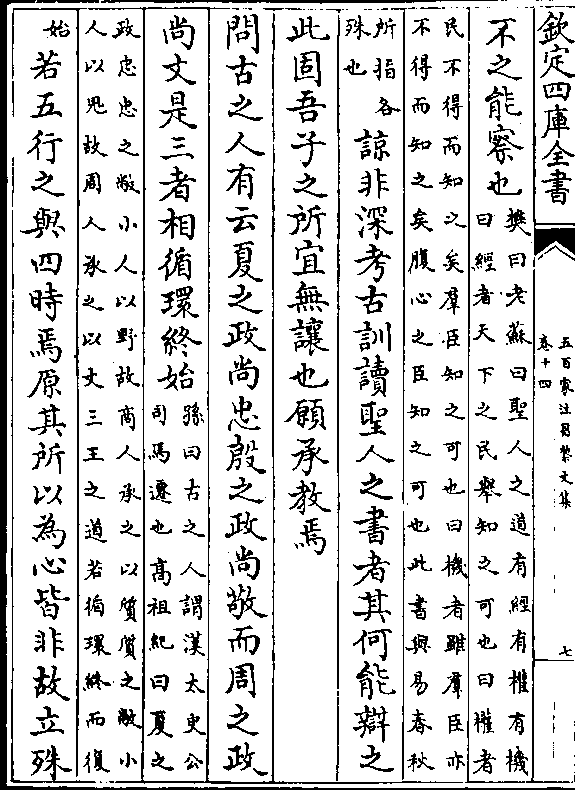 欽定四庫全書
五百家注昌黎文集
卷十四
七
不之能察也
樊曰老蘇曰聖人之道有經有權有機
曰經者天下之民舉知之可也曰權者
民不得而知之矣羣臣知之可也曰機者雖羣臣亦
不得而知之矣腹心之臣知之可也此書與易春秋
所指各
殊也
諒非深考古訓讀聖人之書者其何能辯之
此固吾子之所宜無讓也願承教焉
問古之人有云夏之政尚忠殷之政尚敬而周之政
尚文是三者相循環終始
孫曰古之人謂漢太史公
司馬遷也高祖紀曰夏之
政忠忠之敝小人以野故商人承之以質質之敝小
人以鬼故周人承之以文三王之道若循環終而復
始
若五行之與四時焉原其所以為心皆非故立殊